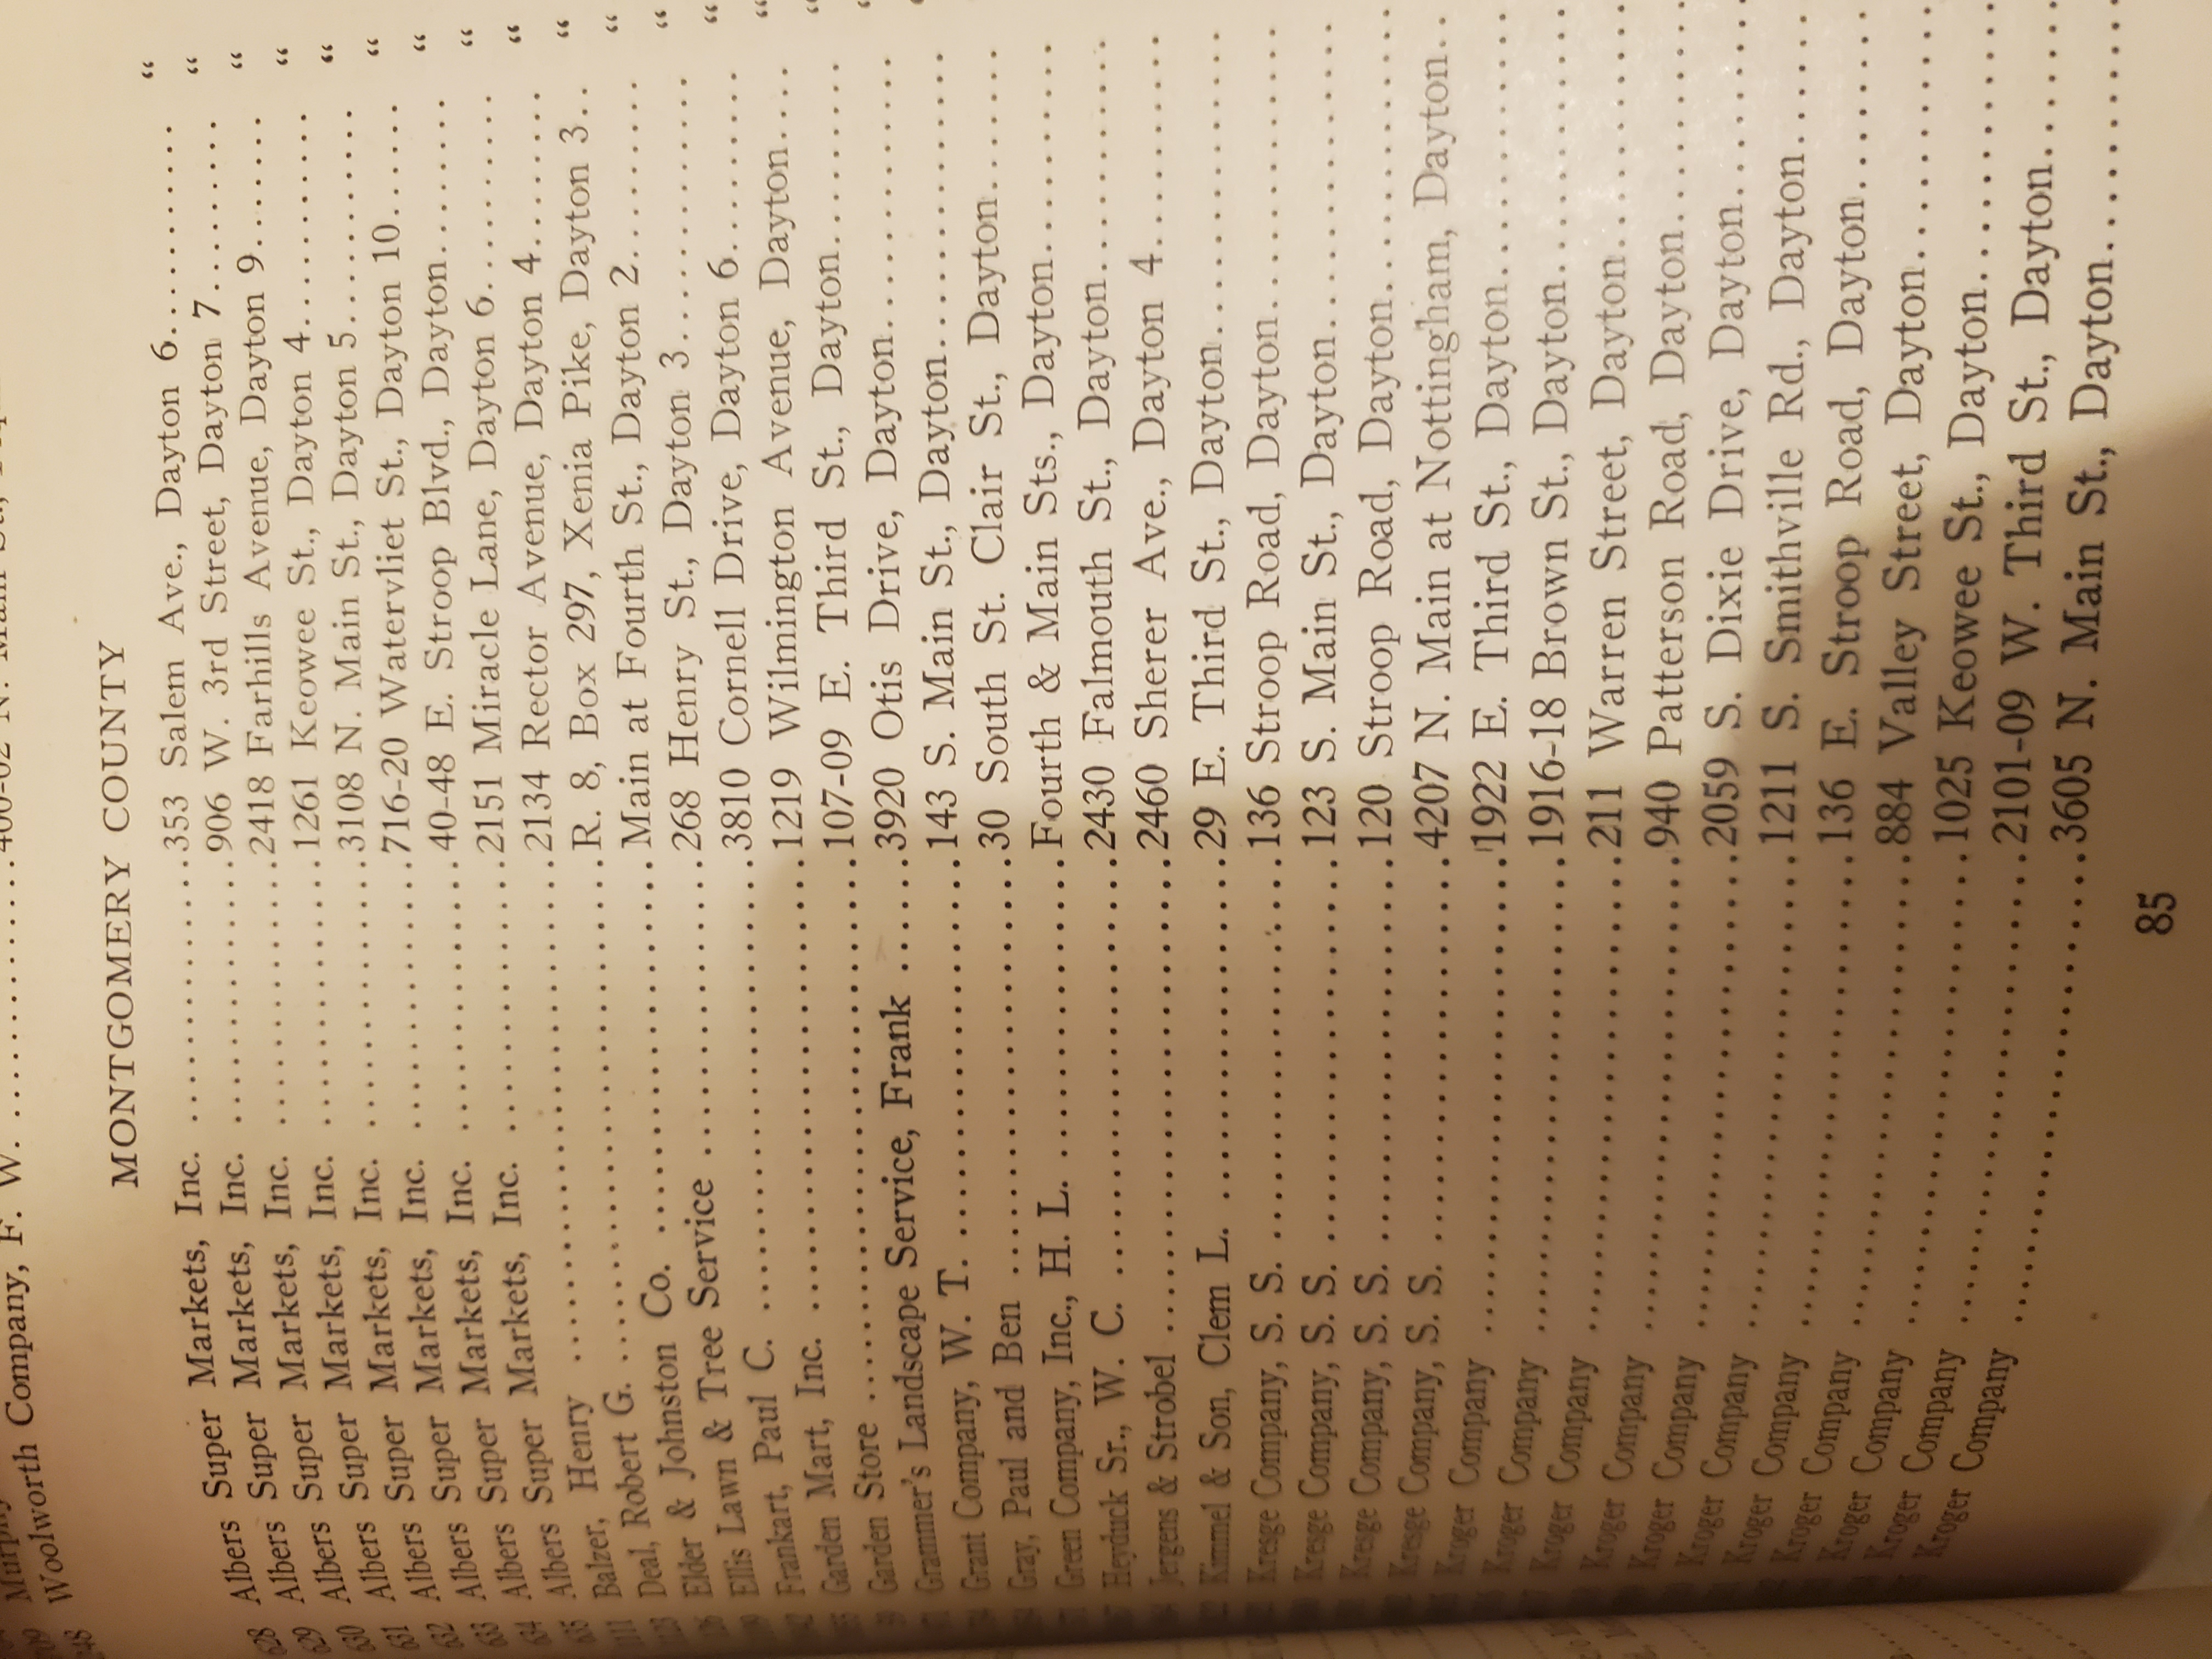 Woolworth Company, F. W. ..........400-02 N. Main St.,
MONTGOMERY COUNTY
628 Albers Super Markets, Inc. ..........353 Salem Ave., Dayton 6.......... “
629 Albers Super Markets, Inc. ..........906 W. 3rd Street, Dayton 7.......... “
630 Albers Super Markets, Inc. ..........2418 Farhills Avenue, Dayton 9.......... “
631 Albers Super Markets, Inc. ..........1261 Keowee St., Dayton 4.......... “
632 Albers Super Markets, Inc. ..........3108 N. Main St., Dayton 5.......... “
633 Albers Super Markets, Inc. ..........716-20 Watervliet St., Dayton 10.......... “
634 Albers Super Markets, Inc. ..........40-48 E. Stroop Blvd., Dayton.......... “
635 Albers Super Markets, Inc. ..........2151 Miracle Lane, Dayton 6.......... “
Balzer, Henry ..........2134 Rector Avenue, Dayton 4.......... “
Deal, Robert G. ..........R. 8, Box 297, Xenia Pike, Dayton 3.. “
Elder & Johnston Co. ..........Main at Fourth St., Dayton 2.......... “
Ellis Lawn & Tree Service ..........268 Henry St., Dayton 3.......... “
Frankart, Paul C. ..........3810 Cornell Drive, Dayton 6.......... “
Garden Mart, Inc. ..........1219 Wilmington Avenue, Dayton.... “
Garden Store ..........107-09 E. Third St., Dayton.......... “
Grammer's Landscape Service, Frank .....3920 Otis Drive, Dayton..........
Grant Company, W. T. ..........143 S. Main St., Dayton..........
Gray, Paul and Ben ..........30 South St. Clair St., Dayton..........
Green Company, Inc., H. L. ..........Fourth & Main Sts., Dayton..........
Heyduck Sr., W. C. ..........2430 Falmouth St., Dayton..........
Jergens & Strobel ..........2460 Sherer Ave., Dayton 4..........
Kimmel & Son, Clem L. ..........29 E. Third St., Dayton..........
Kresge Company, S. S. ..........136 Stroop Road, Dayton..........
Kresge Company, S. S. ..........123 S. Main St., Dayton..........
Kresge Company, S. S. ..........120 Stroop Road, Dayton..........
Kresge Company, S. S. ..........4207 N. Main at Nottingham, Dayton..
Kroger Company ..........1922 E. Third St., Dayton..........
Kroger Company ..........1916-18 Brown St., Dayton..........
Kroger Company ..........211 Warren Street, Dayton..........
Kroger Company ..........940 Patterson Road, Dayton..........
Kroger Company ..........2059 S. Dixie Drive, Dayton..........
Kroger Company ..........1211 S. Smithville Rd., Dayton..........
Kroger Company ..........136 E. Stroop Road, Dayton..........
Kroger Company ..........884 Valley Street, Dayton..........
Kroger Company ..........1025 Keowee St., Dayton..........
Kroger Company ..........2101-09 W. Third St., Dayton..........
Kroger Company ..........3605 N. Main St., Dayton..........
85